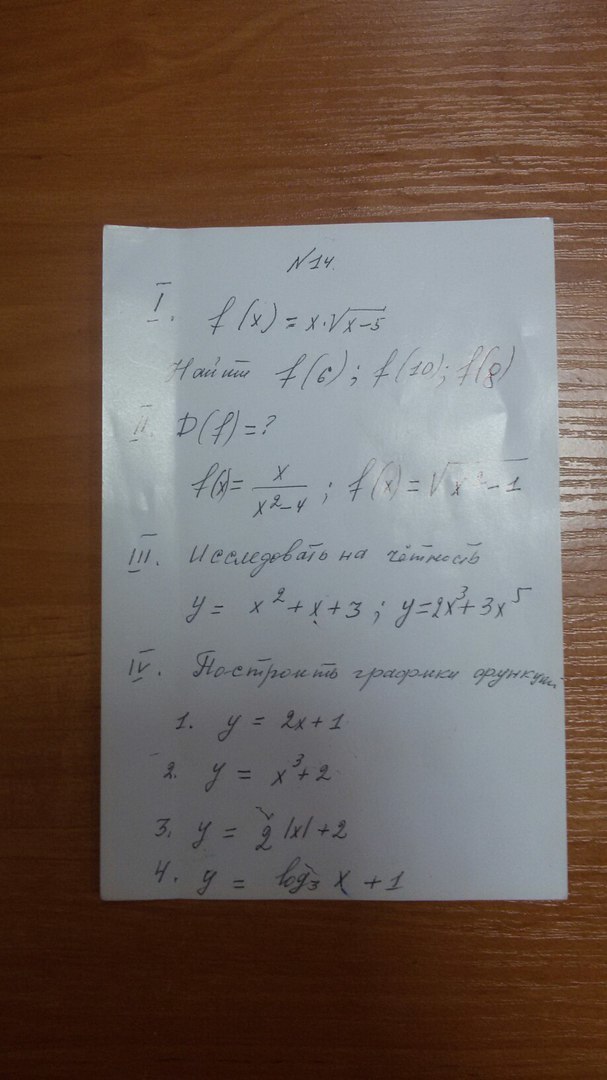 N14.
I. f(x) = x·√(x-5)
Найти f(6); f(10); f(8)
II. D(f) = ?
f(x) = x/(x²-4); f(x) = √(x²-1)
III. Исследовать на чётность
y = x² + x + 3; y = 2x³ + 3x⁵
IV. Построить графики функции
1. y = 2x + 1
2. y = x³ + 2
3. y = 2|x| + 2
4. y = log₃ x + 1